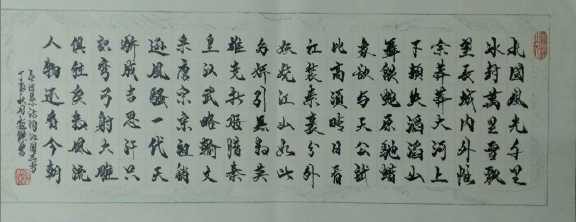 北國風光千里
冰封萬里雪飄
望長城內外惟
余莽莽大河上
下頓失滔滔山
舞銀蛇原馳蠟
象欲与天公試
比高須晴日看
紅裝素裹分外
妖嬈江山如此
多嬌引無數英
雄競折腰惜秦
皇漢武略輸文
采唐宗宋祖稍
遜風騷一代天
驕成吉思汗只
識彎弓射大雕
俱往矣數風流
人物還看今朝
丁酉秋月